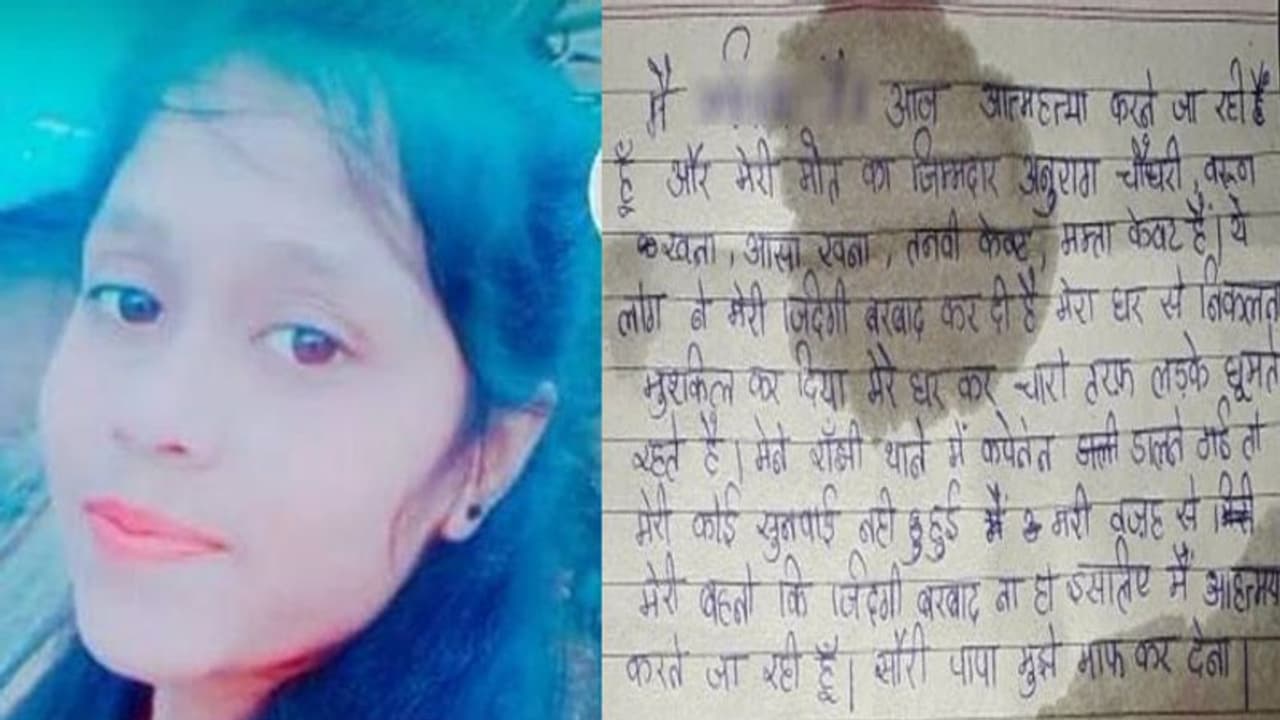 मैं आज आत्महत्या करने जा रही हूँ
हूँ और मेरी मौत का जिम्मदार अनुराग चौधरी, वरून
खन्ना, आसा खन्ना, तनवी केवट, ममता केवट हैं। ये
लोग ने मेरी जिंदगी बरबाद कर दी है मेरा घर से निकलना
मुशकिल कर दिया मेरे घर कर चारो तरफ लड़के घूमते
रहते है। मेने राँझी थाने में कंपेलेन डालने गई तो
मेरी कोई सुनवाई नही हुई मेरी वजह से
मेरी बहनो कि जिंदगी बरबाद ना हो इसलिए मैं
करने जा रही हूँ। सौरी पापा मुझे माफ कर देना।